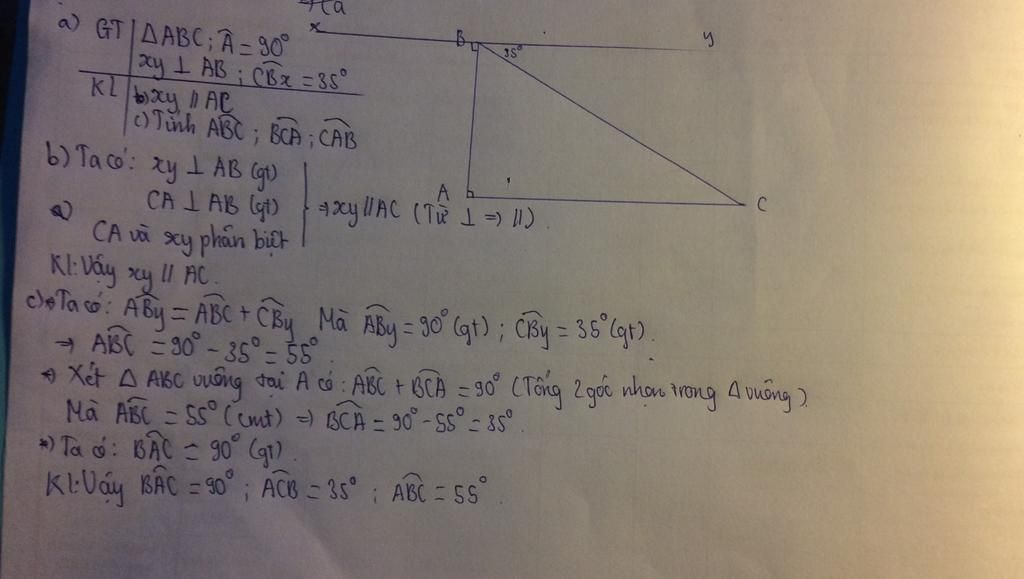 a) GT | ΔABC; Â = 90°
xy ⊥ AB; CBx = 35°
KL | b) xy // AC
c) Tính ABC; BCA; CAB
x B y
35°
A C
b) Ta có: xy ⊥ AB (gt)
CA ⊥ AB (gt)
⇒ xy // AC (Từ ⊥ ⇒ //).
CA và xy phân biệt
Kl: Vậy xy // AC.
c) *) Ta có: ABy = ABC + CBy Mà ABy = 90° (gt); CBy = 35° (gt).
⇒ ABC = 90° - 35° = 55°.
*) Xét Δ ABC vuông tại A có: ABC + BCA = 90° (Tổng 2 góc nhọn trong Δ vuông).
Mà ABC = 55° (cmt) ⇒ BCA = 90° - 55° = 35°.
*) Ta có: BAC = 90° (gt).
Kl: Vậy BAC = 90°; ACB = 35°; ABC = 55°.